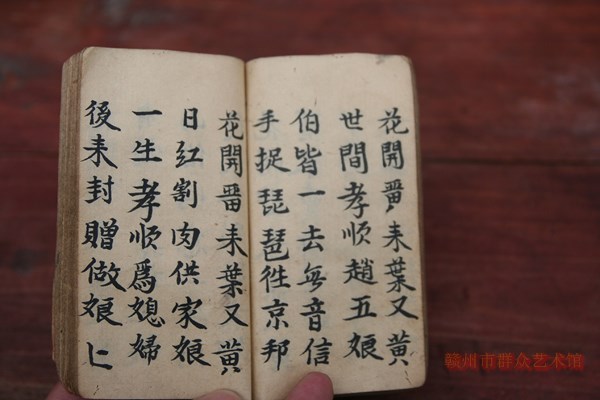 花開畨来葉又黄
世間孝順趙五娘
伯皆一去無音信
手捉琵琶徃京邦
花開畨来葉又黄
日紅割肉供家娘
一生孝順爲媳婦
後来封贈做娘匕
赣州市群众艺术馆